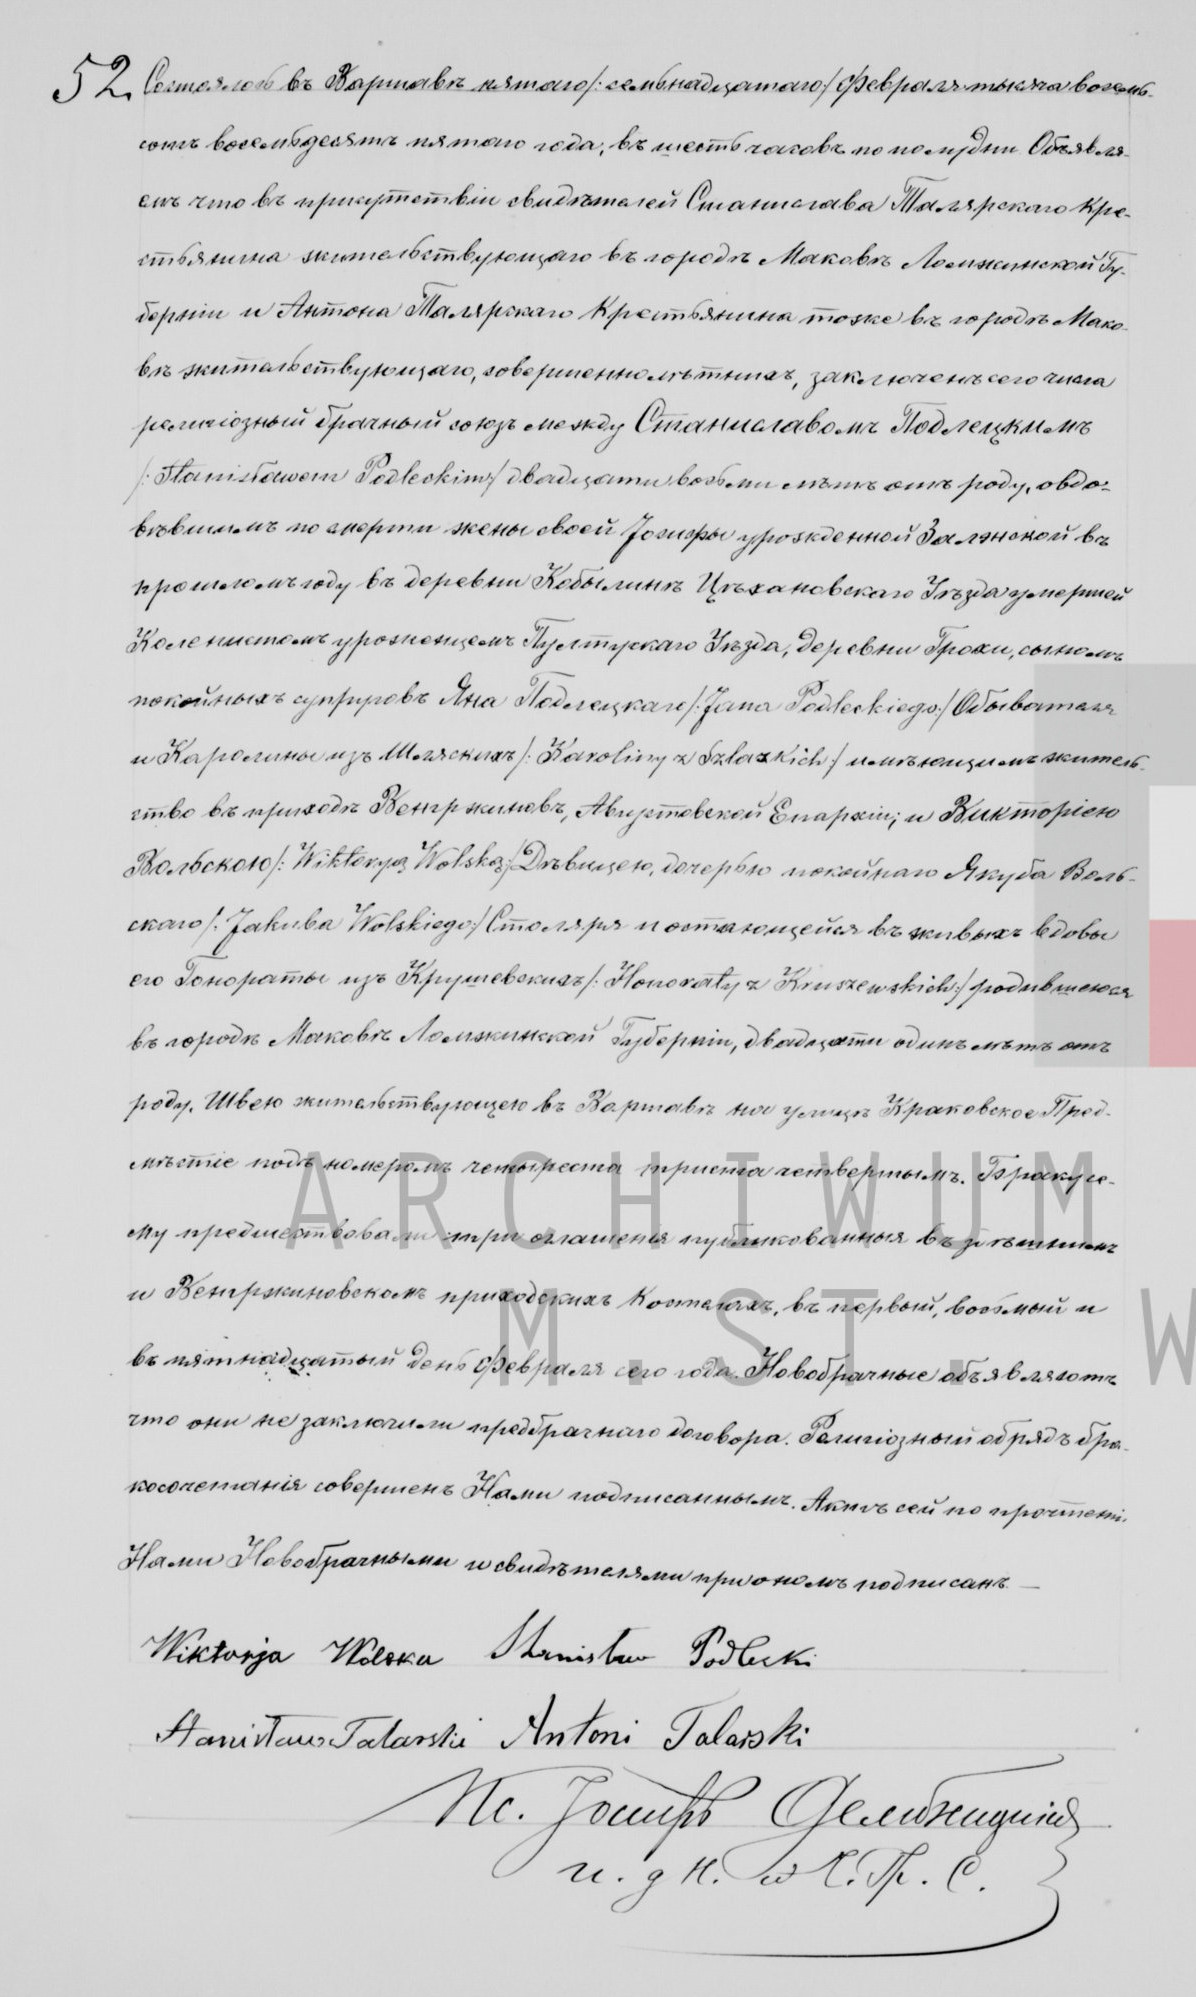 52. Состоялось въ Варшавѣ пятаго /:семьнадцатаго:/ Февраля тысяча восемь-
сотъ восемьдесятъ пятаго года, въ шесть часовъ по полудни. Объявля-
емъ что въ присутствіи свидѣтелей Станислава Талярскаго Кре-
стьянина жительствующаго въ городѣ Маковѣ Ломжинской Гу-
берніи и Антона Талярскаго Крестьянина тоже въ городѣ Мако-
вѣ жительствующаго, совершеннолѣтнихъ, заключенъ сего числа
религіозный брачный союзъ между Станиславомъ Подлецкимъ
/:Stanisławem Podleckim:/ двадцати восьми лѣтъ отъ роду, овдо-
вѣвшимъ по смерти жены своей Іозефы урожденной Залэнской въ
прошломъ году въ деревни Кобылинѣ Цѣхановскаго Уѣзда умершей
Колонистомъ уроженцемъ Пултускаго Уѣзда, деревни Грохи, сыномъ
покойныхъ супруговъ Яна Подлецкаго /:Jana Podleckiego:/ Обывателя
и Каролины изъ Шляскихъ /:Karoliny z Szlazkich:/ имѣющимъ житель-
ство въ приходѣ Венгржиновъ, Августовской Епархіи; и Викторіею
Вольскою /:Wiktoryą Wolską:/ Дѣвицею, дочерью покойнаго Якуба Воль-
скаго /:Jakuba Wolskiego:/ Столяра и остающейся въ живыхъ вдовы
его Гонораты изъ Крушевскихъ /:Honoraty z Kruszewskich:/ родившеюся
въ городѣ Маковѣ Ломжинской Губерніи, двадцати одинъ лѣтъ отъ
роду, Швею жительствующею въ Варшавѣ на улицѣ Краковское Пред-
мѣстіе подъ номеромъ четыреста триста четвертымъ. Браку се-
му предшествовали три оглашенія публикованныя въ здѣшнемъ
и Венгржиновскомъ приходскихъ Костелахъ, въ первый, восьмый и
въ пятнадцатый день Февраля сего года. Новобрачные объявляютъ
что они не заключили предбрачнаго договора. Религіозный обрядъ бра-
косочетанія совершенъ Нами подписаннымъ. Актъ сей по прочтеніи
Нами Новобрачными и свидѣтелями при ономъ подписанъ. —
Wiktorja Wolska Stanisław Podlecki
Stanisław Talarski Antoni Talarski
Кс. Іосифъ
и. д. Н. Ч. Гр. С.
ARCHIWUM
M. ST. W